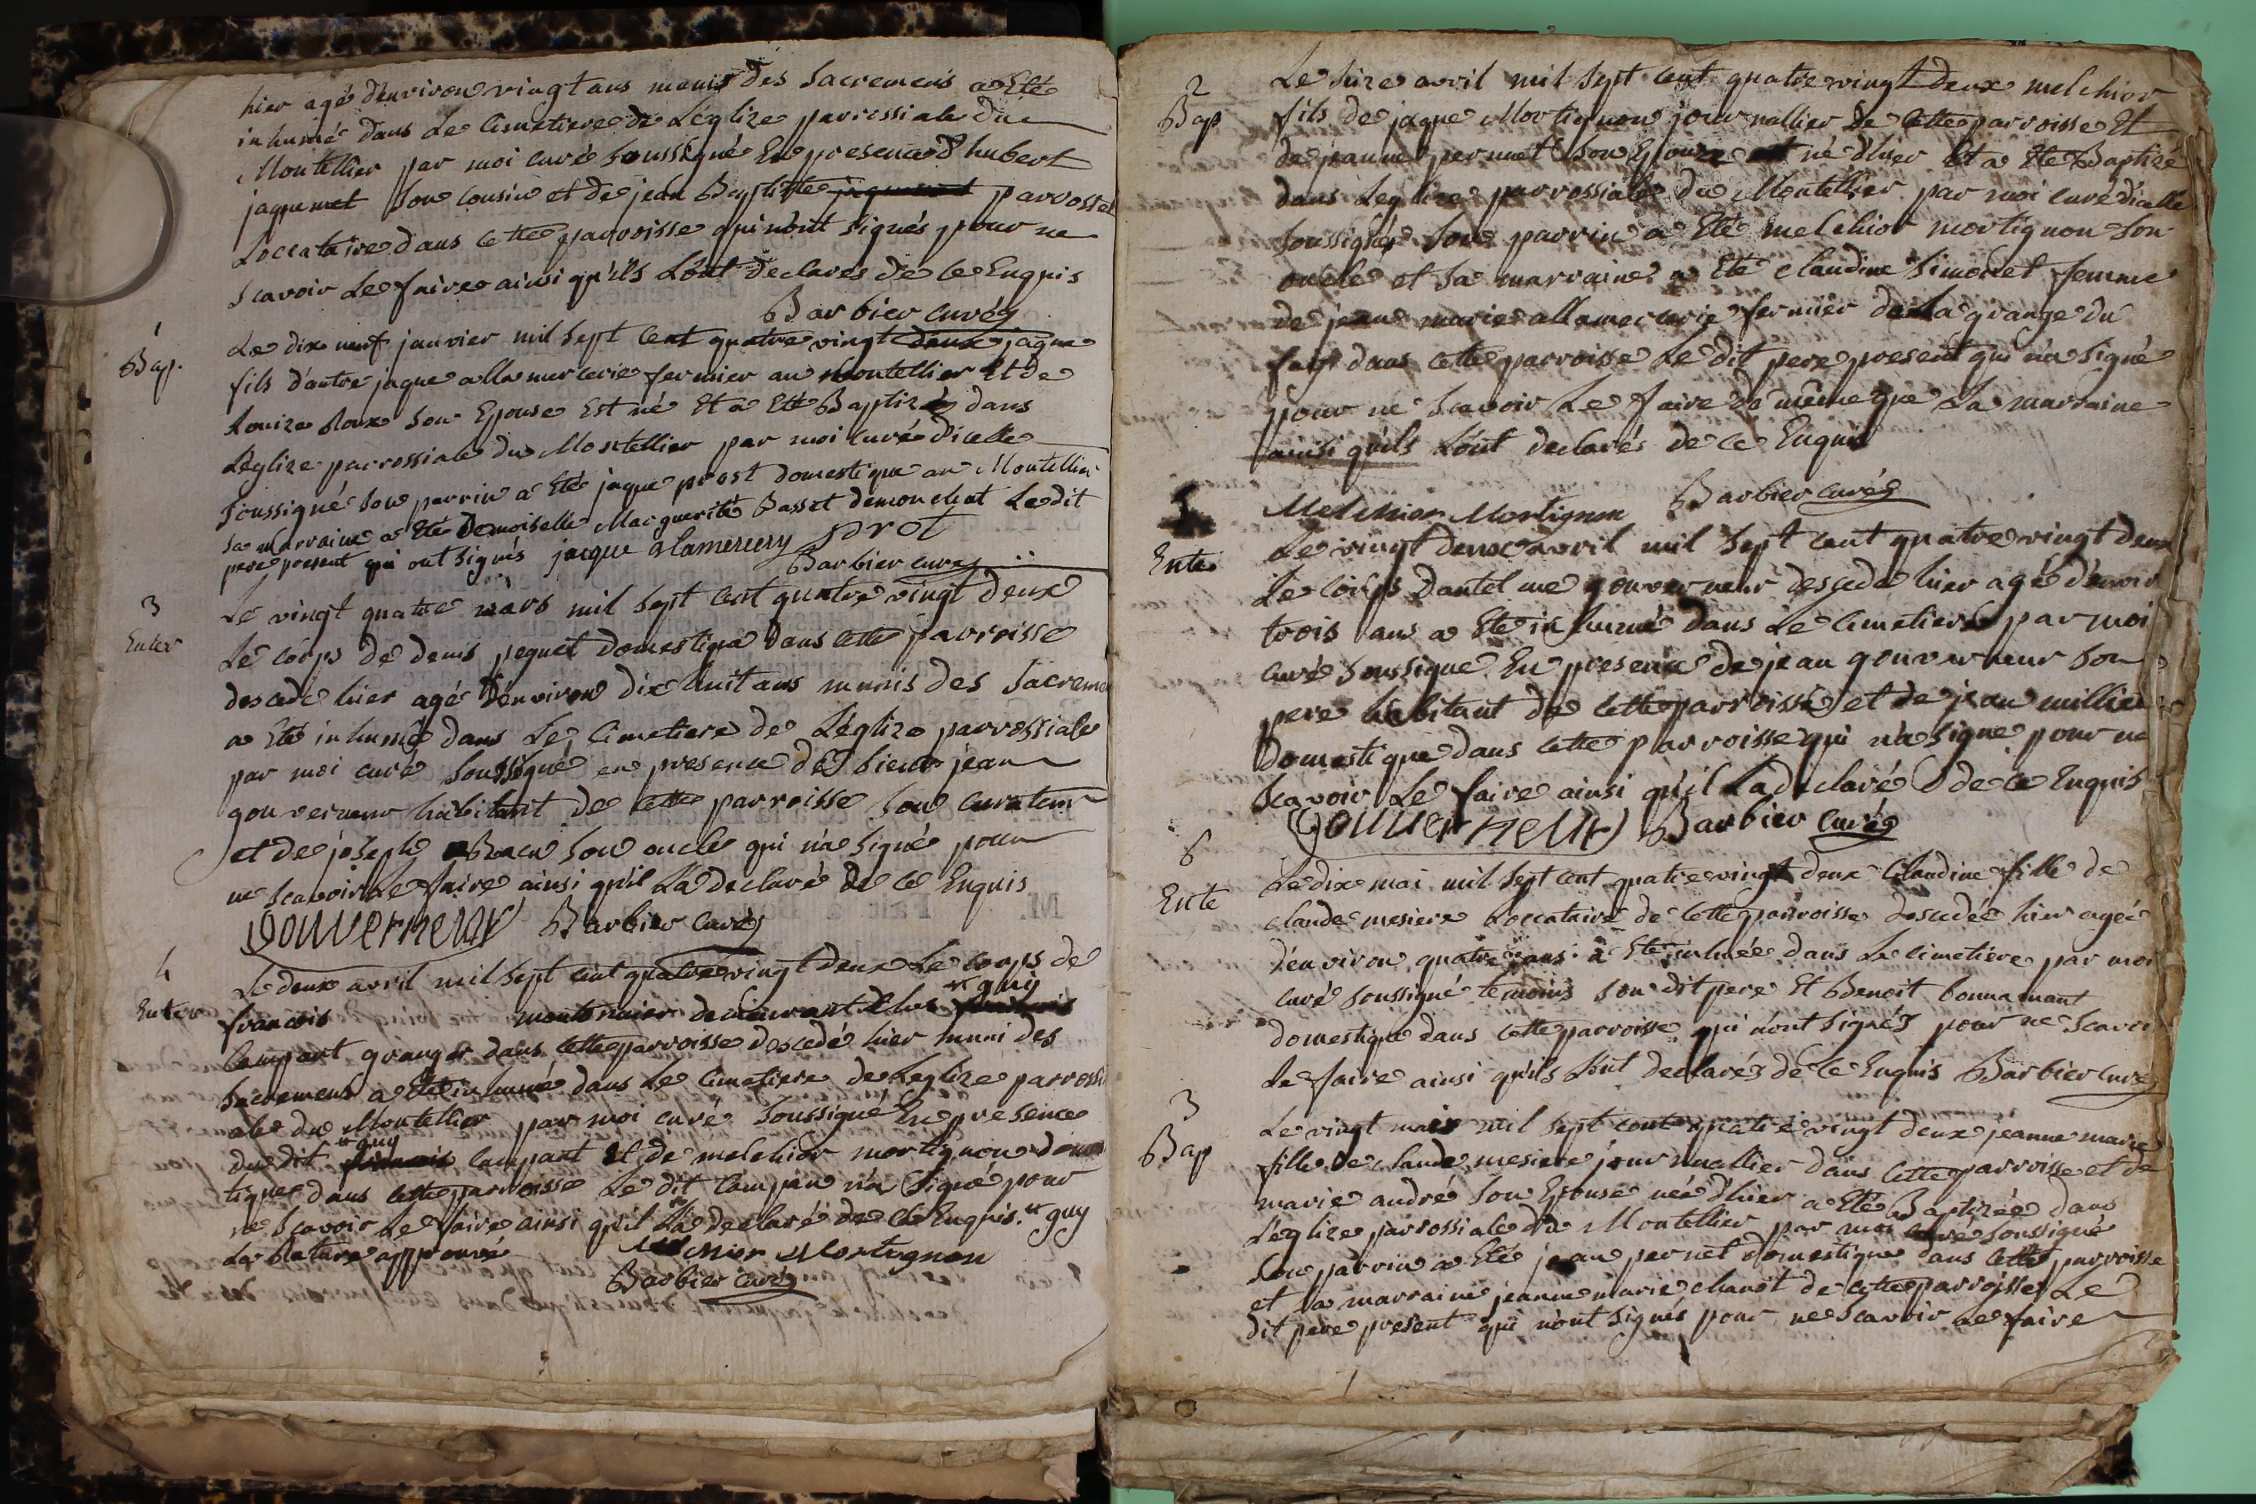 hier agé d'environ vingt ans muni des Sacremens a Eté
inhumé dans Le Cimetiere de L'eglize parrossiale du
Montellier par moi curé Soussigné En presence d'hubert
jaquemet Son Cousin et de jean Baptiste parrosset
Loccataire dans cette parroisse qui n'ont Signés pour ne
Scavoir Le faire ainsi qu'ils L'ont declarés de ce Enquis
Barbier curé
1
Bap.
Le dix neuf janvier mil sept cent quatre vingt deux jaque
fils d'autre jaque alla mercerie fermier au Montellier Et de
Louize Roux Son Epouse Est né Et a Eté Baptizé dans
L'eglize parrossiale du Montellier par moi curé d'icelle
Soussigné Son parrin a Eté jaque prost domestique au Montellier
Sa marraine a Eté Demoiselle Marguerite Basset demonchat Le dit
pere present qui ont Signés jacque alamercery prot
Barbier curé
3
Enter
Le vingt quatre mars mil sept cent quatre vingt deux
Le corps de denis pequet Domestique dans cette parroisse
descede hier agé d'environ dix huit ans munis des Sacremen
a Eté inhumé dans Le Cimetiere de L'eglize parrossiale
par moi curé Soussigné en presence de Sieur jean
gouverneur habitant de cette parroisse Son curateur
et de joseph Son oncle qui n'a Signé pour
ne Scavoir Le faire ainsi qu'il L'a declaré de ce Enquis
Gouverneur Barbier curé
4
Enter
Le deux avril mil sept cent quatre vingt deux Le corps de
francois monternier de chez guy
Campant granger dans cette parroisse descedé hier muni des
Sacremens a Eté inhumé dans Le Cimetiere de L'eglize parrossi
ale du Montellier par moi curé Soussigné En presence
du dit guy Campant Et de melchior mortignon domes
tique dans cette parroisse Le dit Campan n'a Signé pour
ne Scavoir Le faire ainsi qu'il L'a declaré de ce Enquis. guy
La Rature approuvé
Melchior Mortignon
Barbier curé
2
Bap
Le Seize avril mil sept cent quatre vingt deux melchior
fils de jaque Mortignon journallier de cette parroisse Et
de jeanne pernet Son Epouze né d'hier Et a Eté Baptizé
dans L'eglize parrossiale du Montellier par moi curé d'icelle
Soussigné Son parrin a Eté melchior mortignon Son
oncle et Sa marraine a Eté claudine Simonet femme
de jean marie allamercerie fermier de La grange du
fay dans cette parroisse Le dit pere present qui n'a Signé
pour ne Scavoir Le faire de même que La marraine
ainsi qu'ils L'ont declarés de ce Enquis
Melchior Mortignon Barbier curé
5
Enter
Le vingt deux avril mil sept cent quatre vingt deux
Le corps d'antelme gouverneur descede hier agé d'enviro
trois ans a Eté inhumé dans Le Cimetiere par moi
curé Soussigné En presence de jean gouverneur Son
pere habitant de cette parroisse et de jean millier
Domestique dans cette parroisse qui n'a Signé pour ne
Scavoir Le faire ainsi qu'il L'a declaré de ce Enquis
Gouverneur Barbier curé
6
Ente
Le dix mai mil sept cent quatre vingt deux Claudine fille de
claude mesiere Loccataire de cette parroisse descedée hier agée
d'environ quatre ans a Eté inhumée dans Le cimetiere par moi
curé Soussigné temoins Son dit pere Et Benoit bonnamant
domestique dans cette parroisse qui n'ont Signés pour ne Scavoi
Le faire ainsi qu'ils L'ont declarés de ce Enquis Barbier curé
3
Bap
Le vingt mai mil sept cent quatre vingt deux jeanne marie
fille de claude mesiere journallier dans cette parroisse et de
marie andré Son Epouse née d'hier a Eté Baptizée dans
L'eglize parrossiale du Montellier par moi curé Soussigné
Son parrin a Eté jean pernet domestique dans cette parroisse
et Sa marraine jeanne marie chanet de cette parroisse Le
dit pere present qui n'ont Signés pour ne Scavoir Le faire